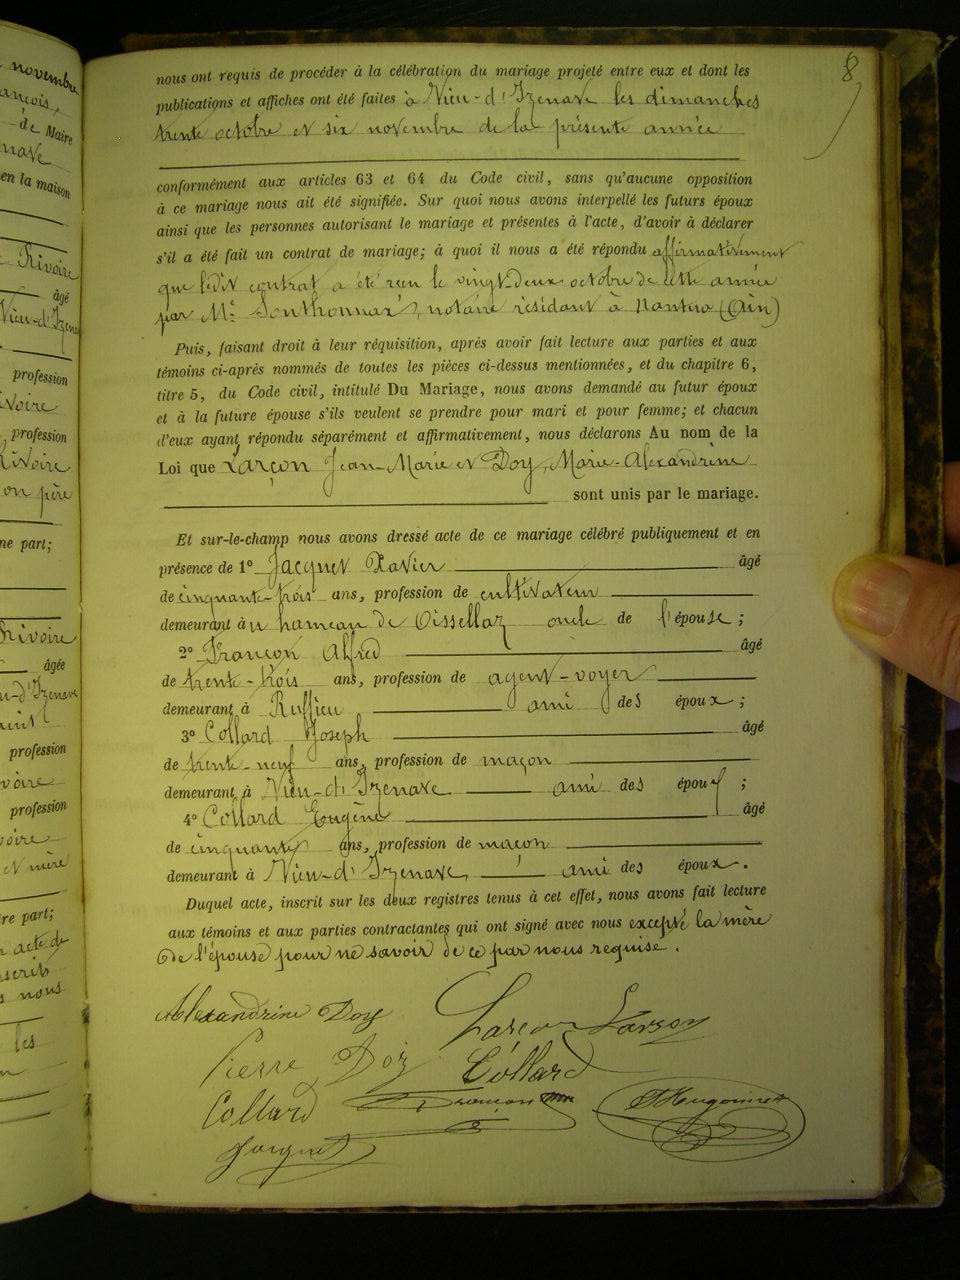 novembre
ançois,
de Maire
nave
en la maison
Rivoire
âgé
Vieu-d'Izena
profession
ivoire
profession
Rivoire
on père
ne part;
Rivoire
âgée
u-d'Izenave
profession
voire
profession
voire
et mère
re part;
acte de
nscrits
s nous
les
8
nous ont requis de procéder à la célébration du mariage projeté entre eux et dont les
publications et affiches ont été faites à Vieu-d'Izenave les dimanches
trente octobre et six novembre de la présente année
conformément aux articles 63 et 64 du Code civil, sans qu'aucune opposition
à ce mariage nous ait été signifiée. Sur quoi nous avons interpellé les futurs époux
ainsi que les personnes autorisant le mariage et présentes à l'acte, d'avoir à déclarer
s'il a été fait un contrat de mariage; à quoi il nous a été répondu affirmativement
que ledit contrat a été reçu le vingt-deux octobre de cette année
par Me Sonthonnax, notaire résidant à Nantua (Ain)
Puis, faisant droit à leur réquisition, après avoir fait lecture aux parties et aux
témoins ci-après nommés de toutes les pièces ci-dessus mentionnées, et du chapitre 6,
titre 5, du Code civil, intitulé Du Mariage, nous avons demandé au futur époux
et à la future épouse s'ils veulent se prendre pour mari et pour femme; et chacun
d'eux ayant répondu séparément et affirmativement, nous déclarons Au nom de la
Loi que Larçon Jean-Marie et Doy, Marie-Alexandrine
sont unis par le mariage.
Et sur-le-champ nous avons dressé acte de ce mariage célébré publiquement et en
présence de 1º Jacquet Xavier âgé
de cinquante-trois ans, profession de cultivateur
demeurant à u hameau de Oissellaz oncle de l'épouse;
2º Françon Alfred âgé
de trente-trois ans, profession de agent-voyer
demeurant à Ruffieu ami des époux;
3º Collard Joseph âgé
de trente-neuf ans, profession de maçon
demeurant à Vieu-d'Izenave ami des époux;
4º Collard Eugène âgé
de cinquante ans, profession de maçon
demeurant à Vieu-d'Izenave, ami des époux.
Duquel acte, inscrit sur les deux registres tenus à cet effet, nous avons fait lecture
aux témoins et aux parties contractantes qui ont signé avec nous excepté la mère
de l'épouse pour ne savoir de ce par nous requise.
Alexandrine Doy Larçon Larçon
Pierre Doy Collard
Collard Françon Hugonnet
Jacquet